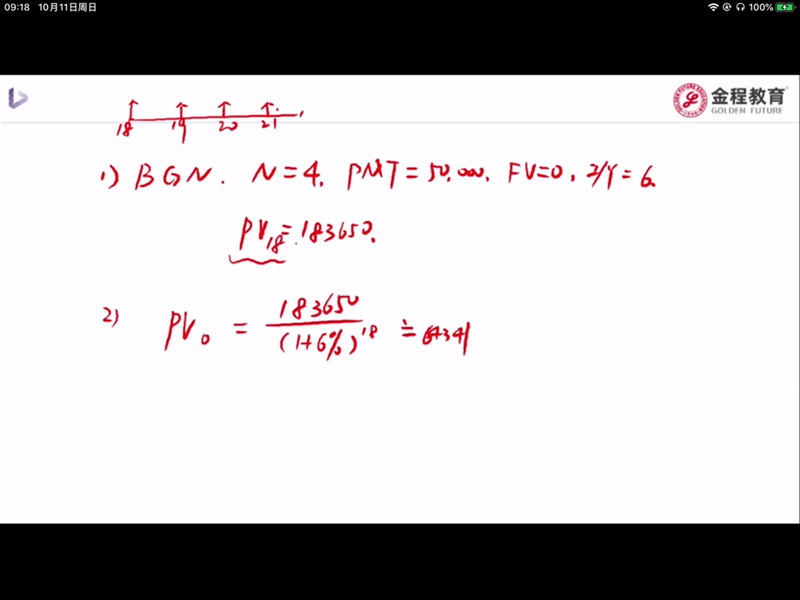 09:18 10月11日周日
100%
金程教育
GOLDEN FUTURE
18 19 20 21
1) BGN. N=4. PMT=50,000. FV=0, I/Y=6.
PV18=183650.
2) PV0 = 183650 / (1+6%)^18 ≐ 64341